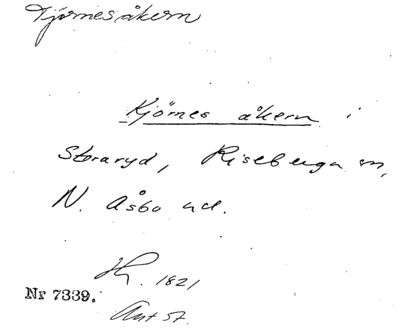 Tjörnesåkern
Kjörnes åkern i
Storaryd, Riseberga sn,
N. Åsbo hd.
Hk. 1821
Nr 7339.
Ant st.